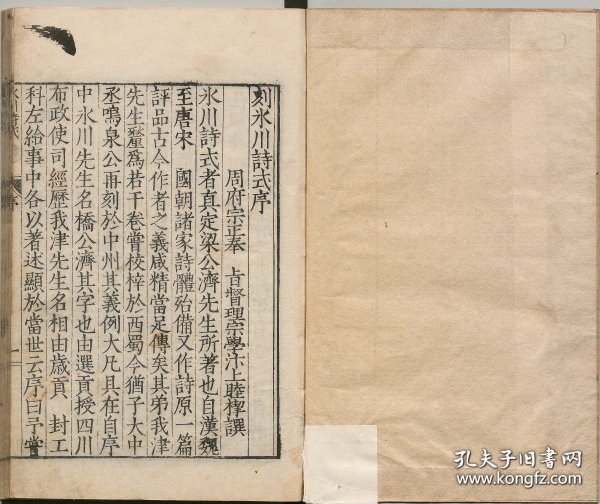 刻氷川詩式序
周府宗正奉 旨督理宗學汴上睦㮮譔
氷川詩式者真定梁公濟先生所著也自漢魏
至唐宋 國朝諸家詩體殆備又作詩原一篇
評品古今作者之義咸精當足傳矣其弟我津
先生釐為若干卷嘗校梓於西蜀今猶子大中
丞鳴泉公再刻於中州其義例大凡具在自序
中氷川先生名橋公濟其字也由選貢授四川
布政使司經歷我津先生名相由歲貢 封工
科左給事中各以著述顯於當世云序曰予嘗
氷川詩式
序
一
孔夫子旧书网
www.kongfz.com